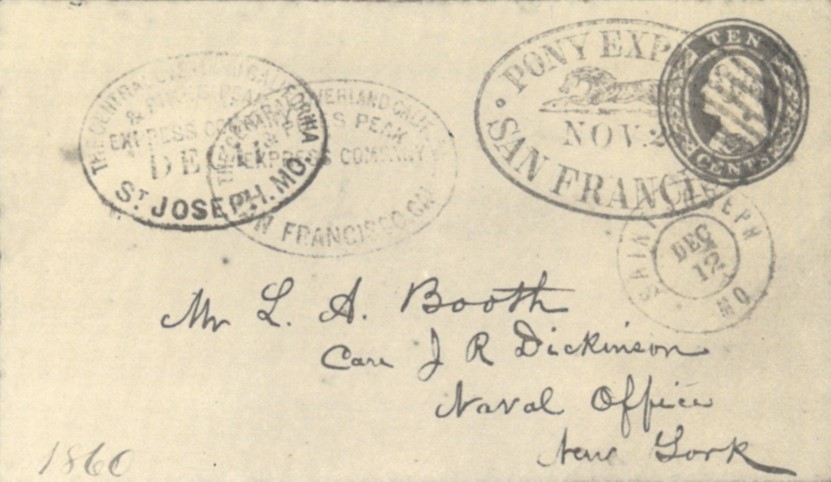 THE CENTRAL OVERLAND CALIFORNIA
& PIKES PEAK
EXPRESS COMPANY
DEC
ST JOSEPH. MO.
THE CENTRAL OVERLAND CALIF
& PIKES PEAK
EXPRESS COMPANY
SAN FRANCISCO. CAL
PONY EXP
NOV. 2
SAN FRANCIS
TEN
CENTS
SAINT JOSEPH
DEC
12
MO
Mr L. A. Booth
Care J R Dickinson
Naval Office
New York
1860